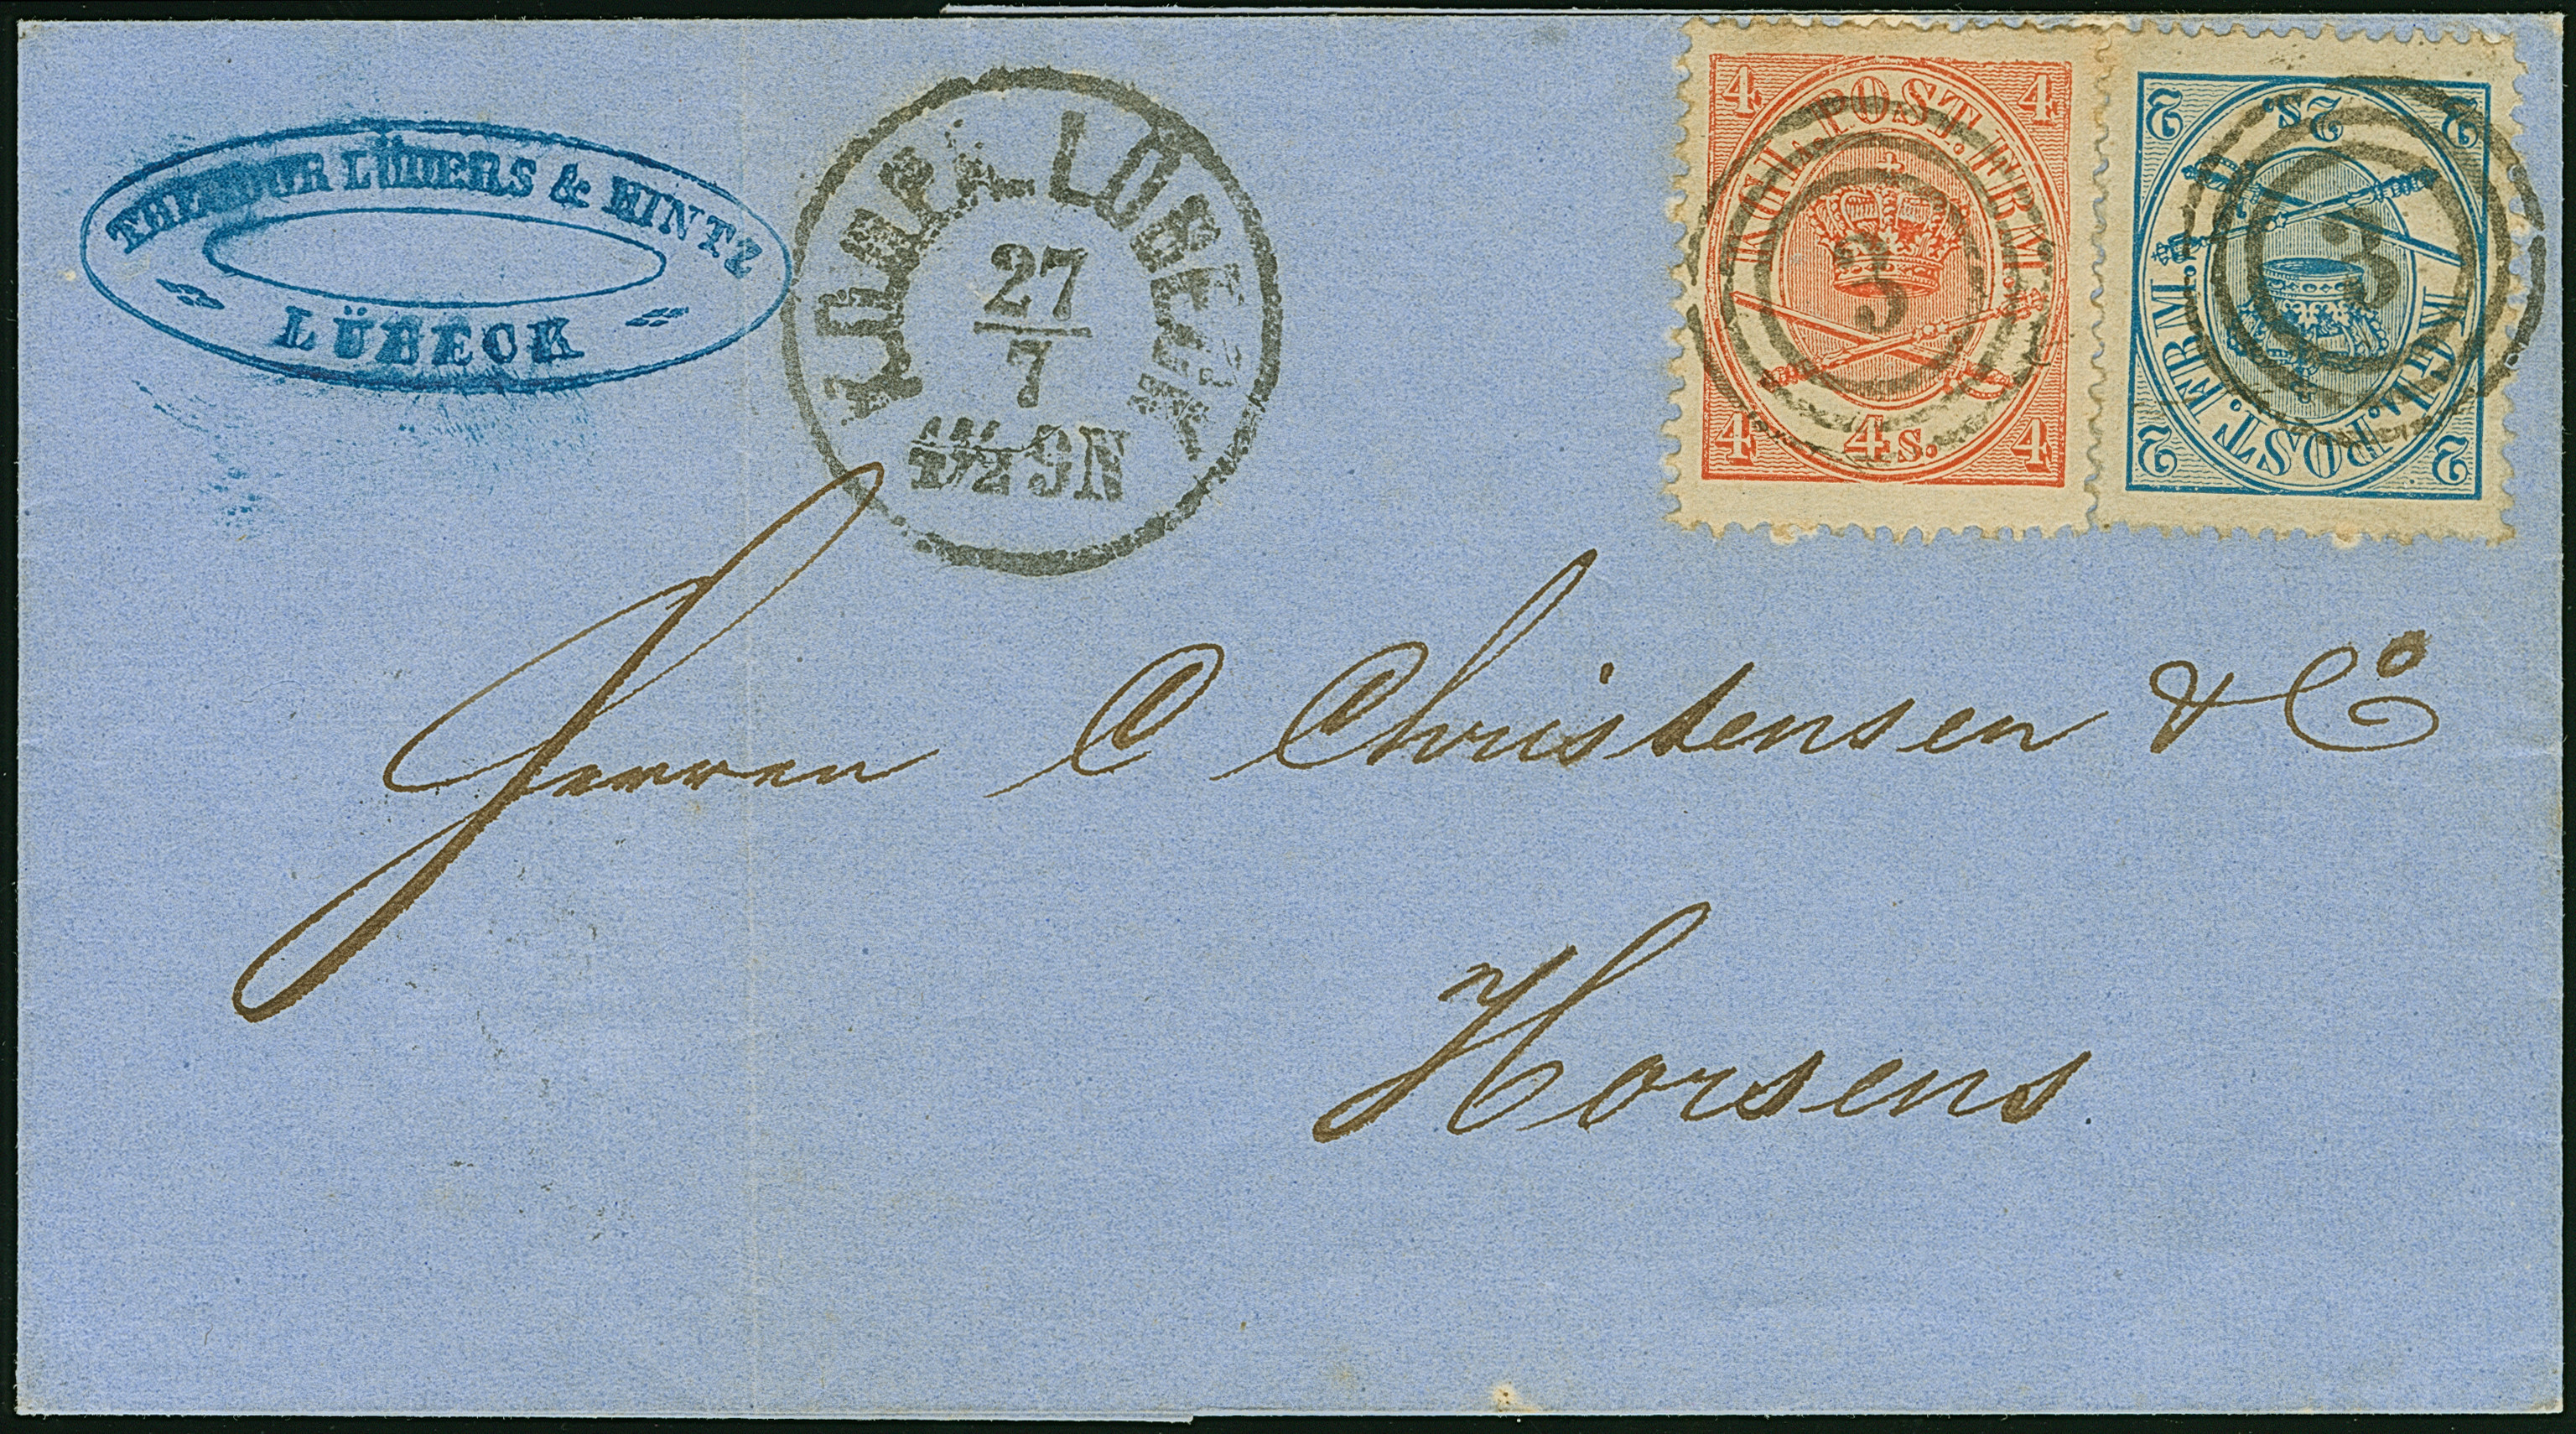 THEODOR LÜDERS & HINTZ
LÜBECK
KDOPA. LÜBECK
27
7
4
4
KGL. POST. FRM.
3
4
4 S.
4
2
2 S.
2
KGL. POST. FRM.
3
2
2
Herren C Christensen & Co
Horsens.